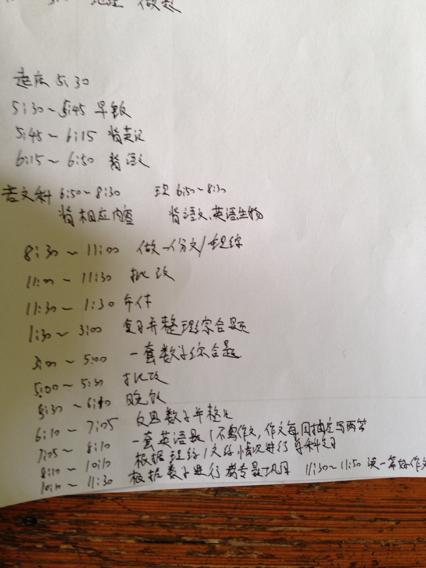 起床 5:30
5:30~5:45 早饭
5:45~6:15 背英语
6:15~6:50 背语文
若文科 6:50~8:30 理 6:50~8:30
背相应内容 背语文、英语生物
8:30~11:00 做一份文/理综
11:00~11:30 批改
11:30~1:30 午休
1:30~3:00 复习并整理综合题
3:00~5:00 一套数学综合题
5:00~5:30 批改
5:30~6:10 晚饭
6:10~7:05 反思数学并整理
7:05~8:10 一套英语卷/不写作文,作文每周抽空写两篇
8:10~10:10 根据理综/文综情况进行单科复习
10:10~11:30 根据数学进行 专题巩固 11:30~11:50 读一篇好作文